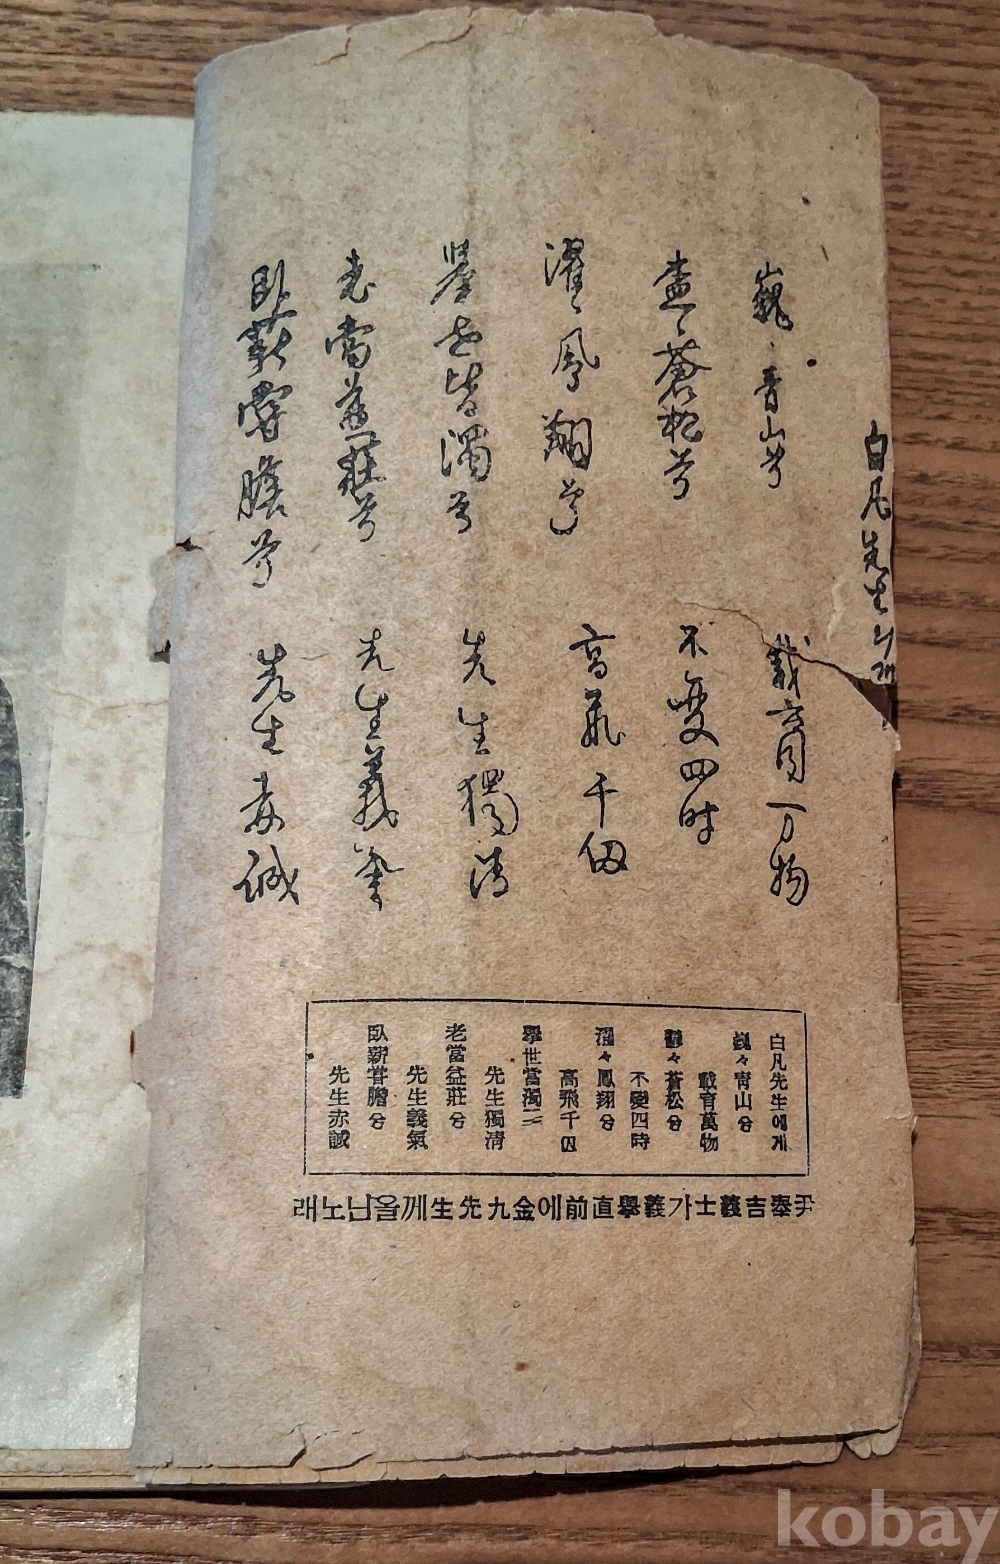 白凡先生에게
巍々青山兮
載育万物
蒼松兮
不変四時
濯々鳳翔兮
高飛千仞
擧世皆濁兮
先生獨清
老當益莊兮
先生義氣
臥薪嘗膽兮
先生赤誠
白凡先生에게
巍々靑山兮
載育萬物
蒼松兮
不變四時
濯々鳳翔兮
高飛千
擧世當濁
先生獨清
老當益莊兮
先生義氣
臥薪嘗膽兮
先生赤誠
尹奉吉義士가義擧直前에金九先生께올닌노래
kobay